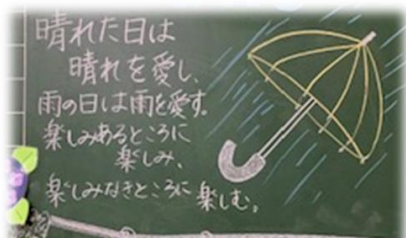 晴れた日は
晴れを愛し、
雨の日は雨を愛す。
楽しみあるところに
楽しみ、
楽しみなきところに楽しむ。